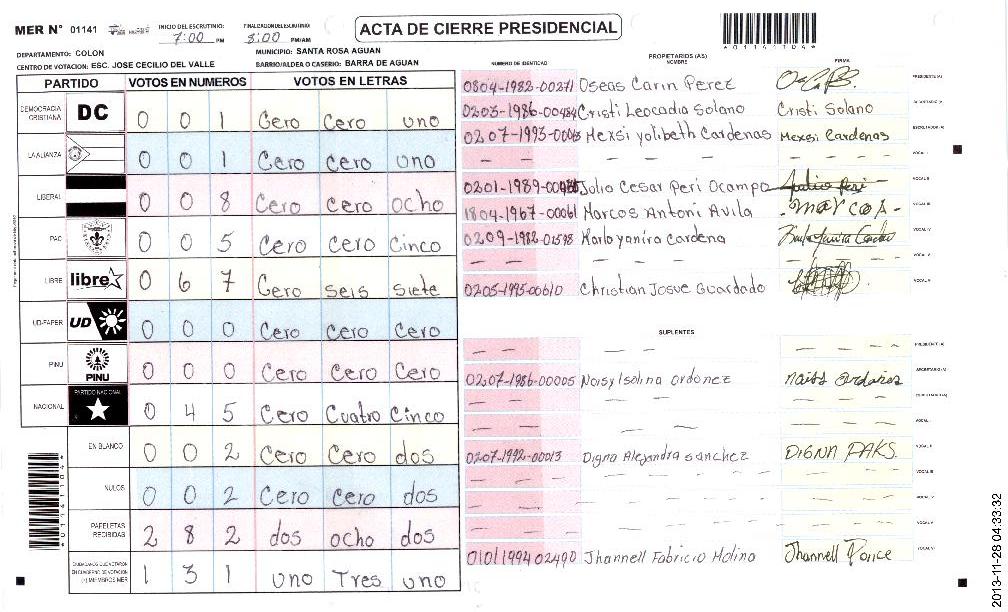 MER N° 01141 INICIO DEL ESCRUTINIO: 7:00 PM FINALIZACION DEL ESCRUTINIO: 8:00 PM/AM
ACTA DE CIERRE PRESIDENCIAL
DEPARTAMENTO: COLON MUNICIPIO: SANTA ROSA AGUAN
CENTRO DE VOTACION: ESC. JOSE CECILIO DEL VALLE BARRIO/ALDEA O CASERIO: BARRA DE AGUAN
PARTIDO VOTOS EN NUMEROS VOTOS EN LETRAS
DEMOCRACIA CRISTIANA DC 0 0 1 Cero Cero uno
LA ALIANZA 0 0 1 Cero Cero uno
LIBERAL 0 0 8 Cero Cero ocho
PAC 0 0 5 Cero Cero Cinco
LIBRE libre 0 6 7 Cero seis siete
UD-FAPER UD 0 0 0 Cero Cero Cero
PINU PINU 0 0 0 Cero Cero Cero
NACIONAL PARTIDO NACIONAL 0 4 5 Cero Cuatro Cinco
EN BLANCO 0 0 2 Cero Cero dos
NULOS 0 0 2 Cero Cero dos
PAPELETAS RECIBIDAS 2 8 2 dos ocho dos
CIUDADANOS QUE VOTARON EN CUADERNO DE VOTACION (+) MIEMBROS MER 1 3 1 uno Tres uno
PROPIETARIOS (AS)
NUMERO DE IDENTIDAD NOMBRE FIRMA
0804-1982-00271 Oseas Carin Perez PRESIDENTE (A)
0203-1986-00484 Cristi Leocadia Solano Cristi Solano SECRETARIO (A)
0207-1993-00013 Mexsi yolibeth Cardenas Mexsi Cardenas ESCRUTADOR (A)
VOCAL I
0201-1989- Julio Cesar Peri Ocampo Julio Peri VOCAL II
1804-1967-00061 Marcos Antoni Avila marcos VOCAL III
0209-1982-01598 Karla yanira Cardena VOCAL IV
VOCAL V
0205-1995-00610 Christian Josue Guardado
SUPLENTES
PRESIDENTE (A)
0207-1986-00005 Noisy Isolina ordonez SECRETARIO (A)
ESCRUTADOR (A)
VOCAL I
0207-1992-00013 Digna Alejandra sanchez DIGNA PAKS. VOCAL II
VOCAL III
VOCAL IV
VOCAL V
0101199402490 Jhannell Fabricio Molina Jhannell Ponce
2013-11-28 04:33:32